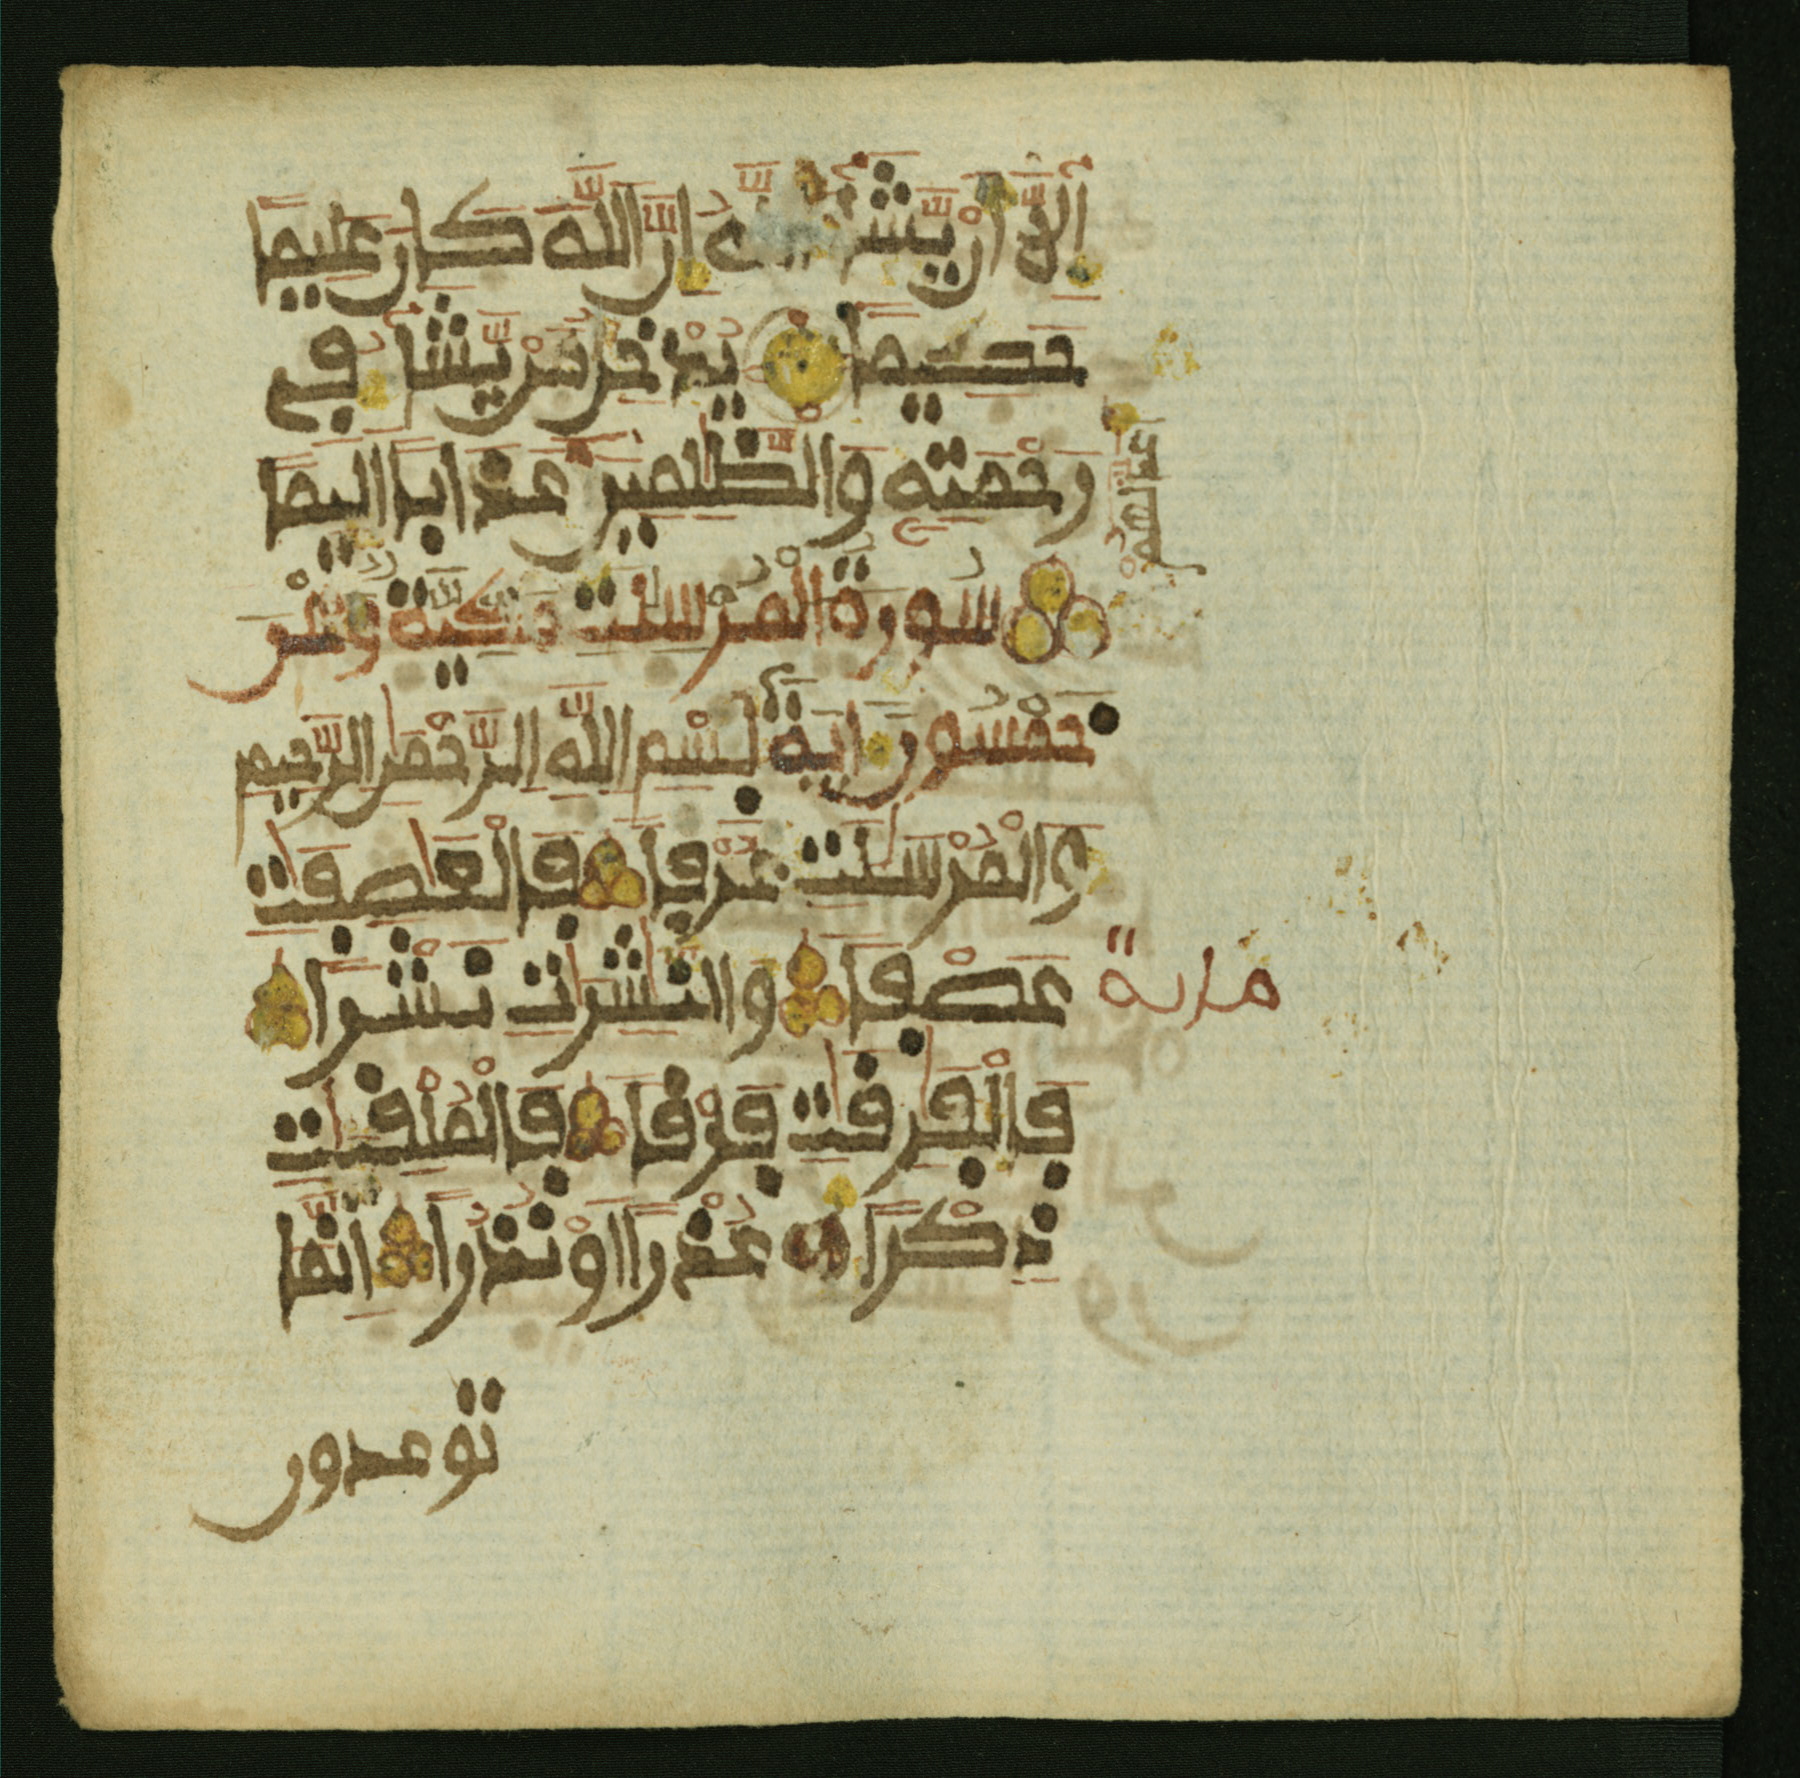 إلا أن يشاء الله إن الله كان عليما
حكيما يدخل من يشاء في
رحمته والظلمين
أعد لهم
عذابا أليما
سورة المرسلت مكية وهي
خمسون ءاية بسم الله الرحمن الرحيم
والمرسلت عرفا فالعصفت
عصفا والنشرت نشرا
فالفرقت فرقا فالملقيت
ذكرا عذرا أو نذرا إنما
توعدون